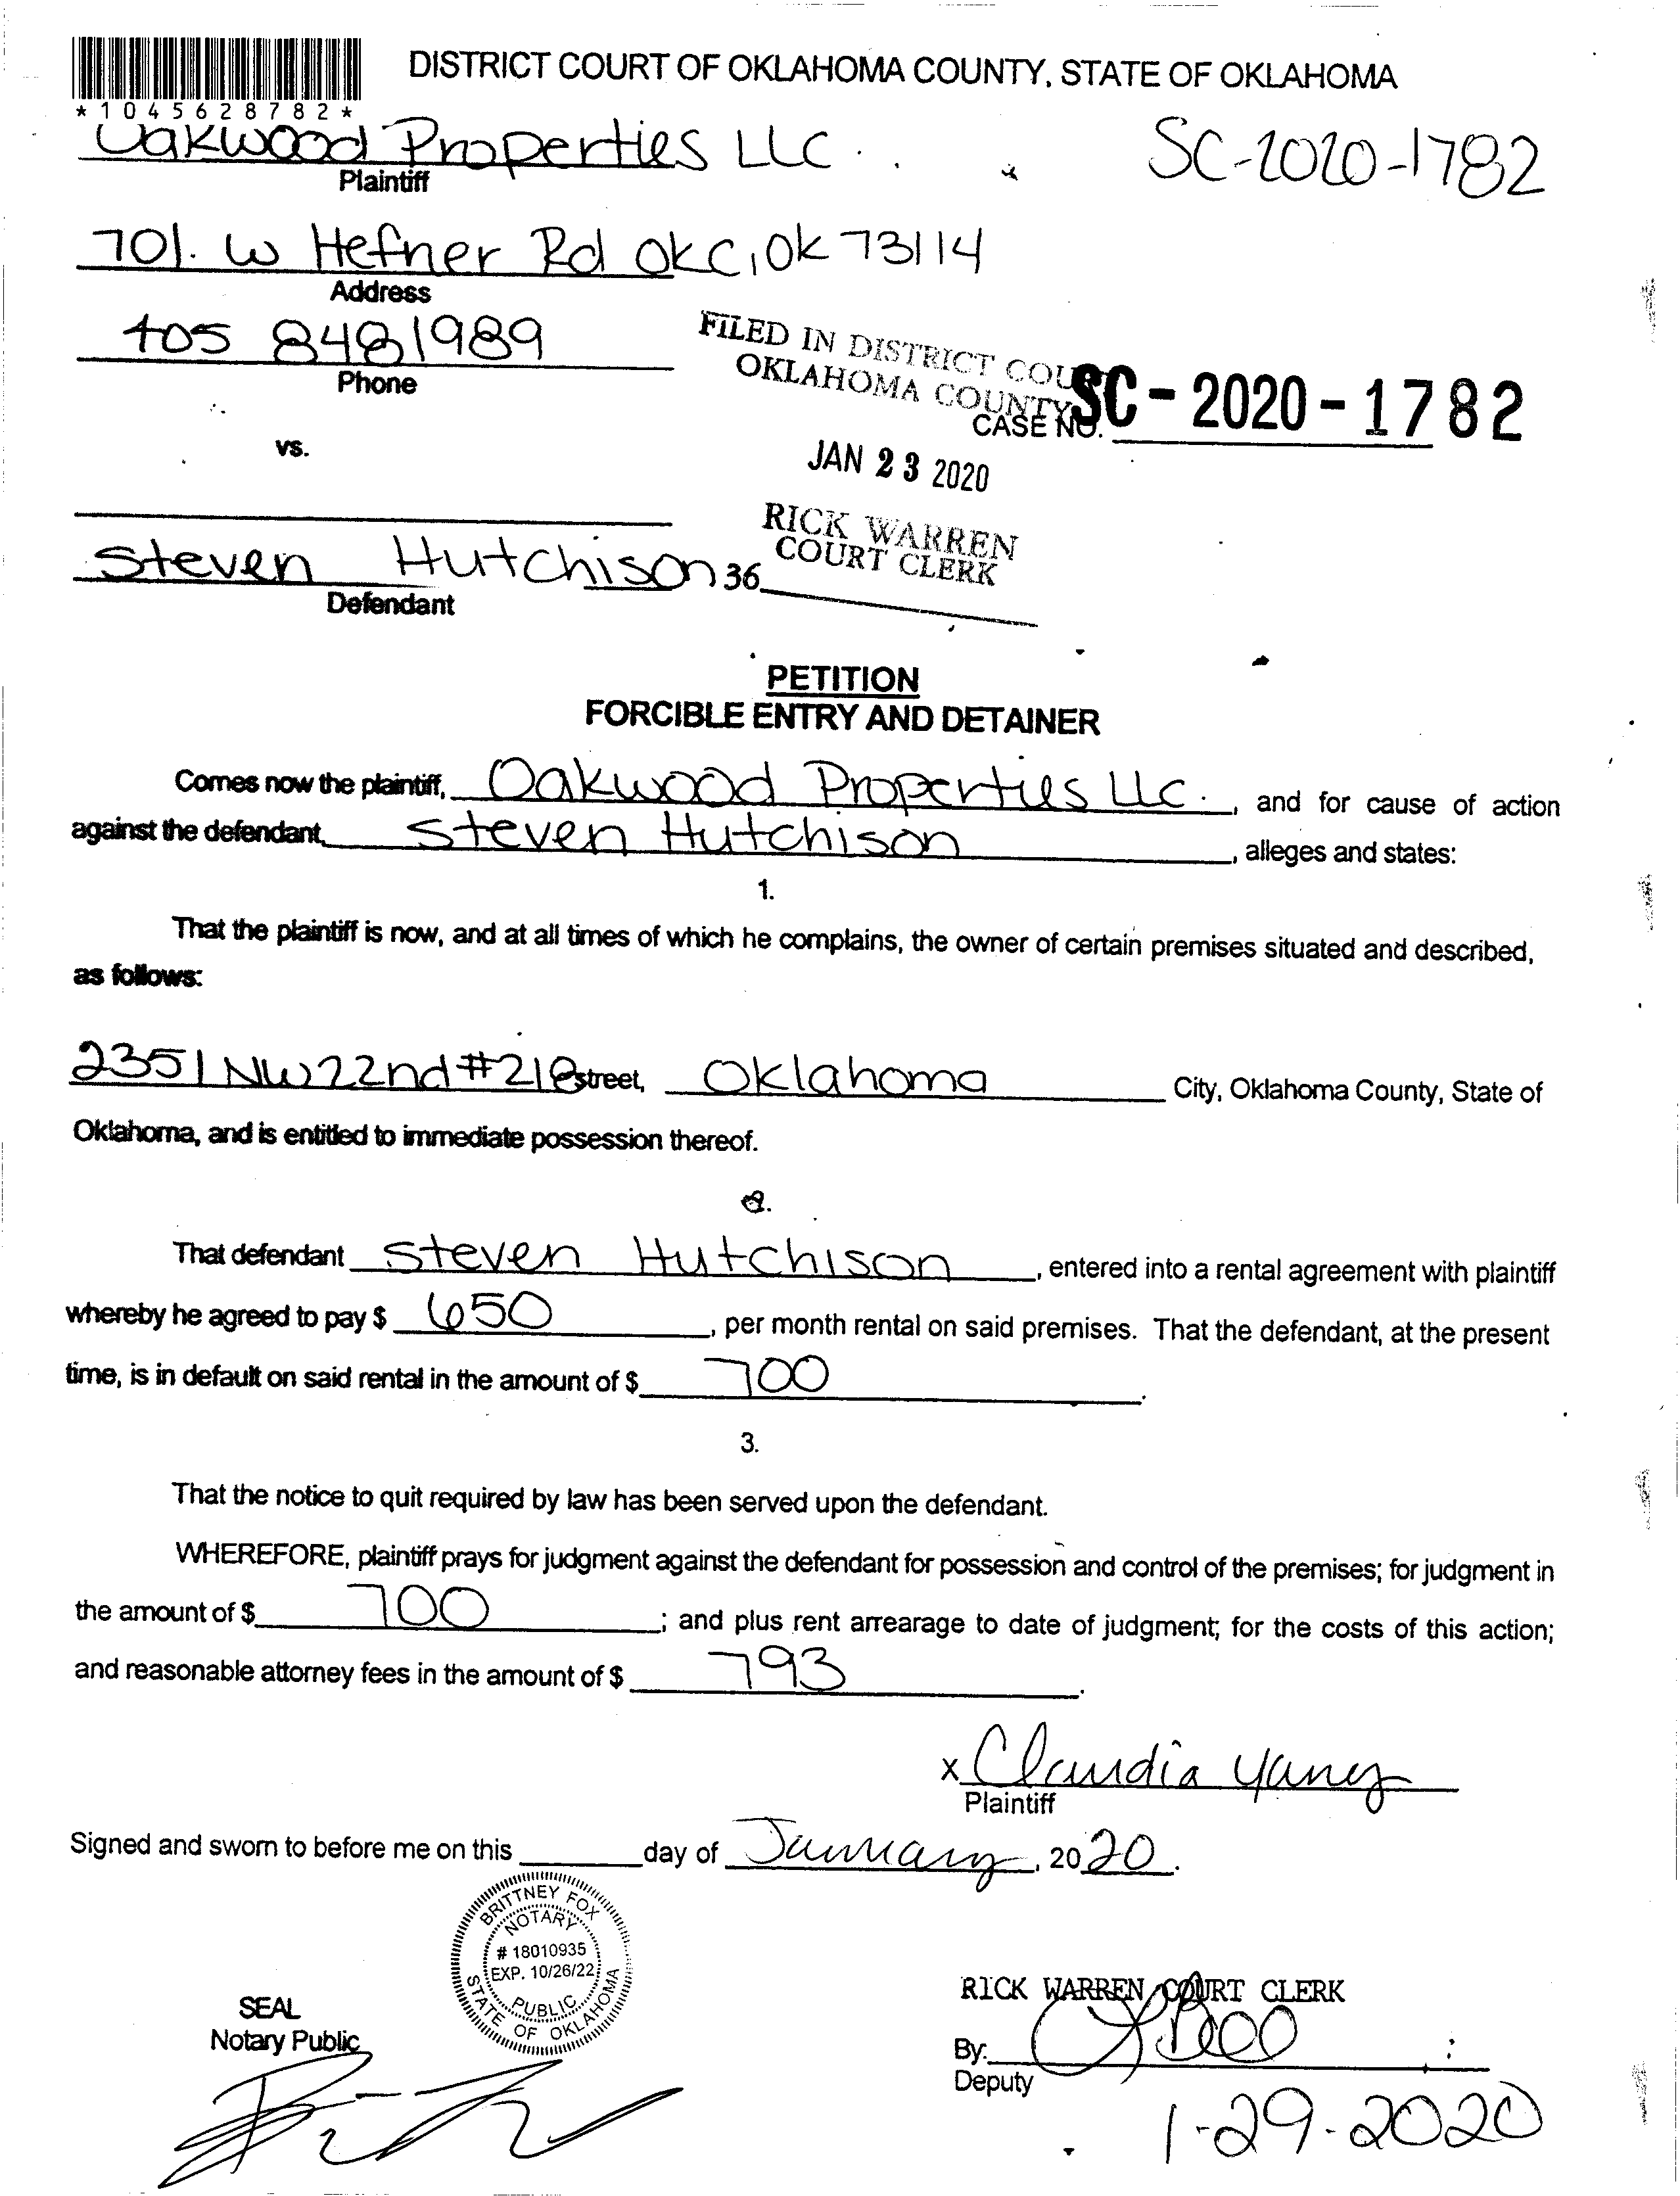 DISTRICT COURT OF OKLAHOMA COUNTY, STATE OF OKLAHOMA
*1045628782*
Oakwood Properties LLC.
SC-2020-1782
Plaintiff
701. W Hefner Rd OKC, OK 73114
Address
405 8481989
Phone
FILED IN DISTRICT COURT
OKLAHOMA COUNTY
CASE NO. SC-2020-1782
vs.
JAN 23 2020
RICK WARREN
COURT CLERK
Steven Hutchison
36
Defendant
PETITION
FORCIBLE ENTRY AND DETAINER
Comes now the plaintiff, Oakwood Properties LLC., and for cause of action
against the defendant, Steven Hutchison, alleges and states:
1.
That the plaintiff is now, and at all times of which he complains, the owner of certain premises situated and described,
as follows:
2351 NW 22nd #218 street, Oklahoma City, Oklahoma County, State of
Oklahoma, and is entitled to immediate possession thereof.
2.
That defendant Steven Hutchison, entered into a rental agreement with plaintiff
whereby he agreed to pay $ 650, per month rental on said premises. That the defendant, at the present
time, is in default on said rental in the amount of $ 700.
3.
That the notice to quit required by law has been served upon the defendant.
WHEREFORE, plaintiff prays for judgment against the defendant for possession and control of the premises; for judgment in
the amount of $ 700; and plus rent arrearage to date of judgment; for the costs of this action;
and reasonable attorney fees in the amount of $ 793.
x Claudia Yanez
Plaintiff
Signed and sworn to before me on this ____ day of January, 2020.
BRITTNEY FOX
NOTARY
# 18010935
EXP. 10/26/22
PUBLIC
STATE OF OKLAHOMA
SEAL
Notary Public
RICK WARREN COURT CLERK
By:
Deputy
1-29-2020